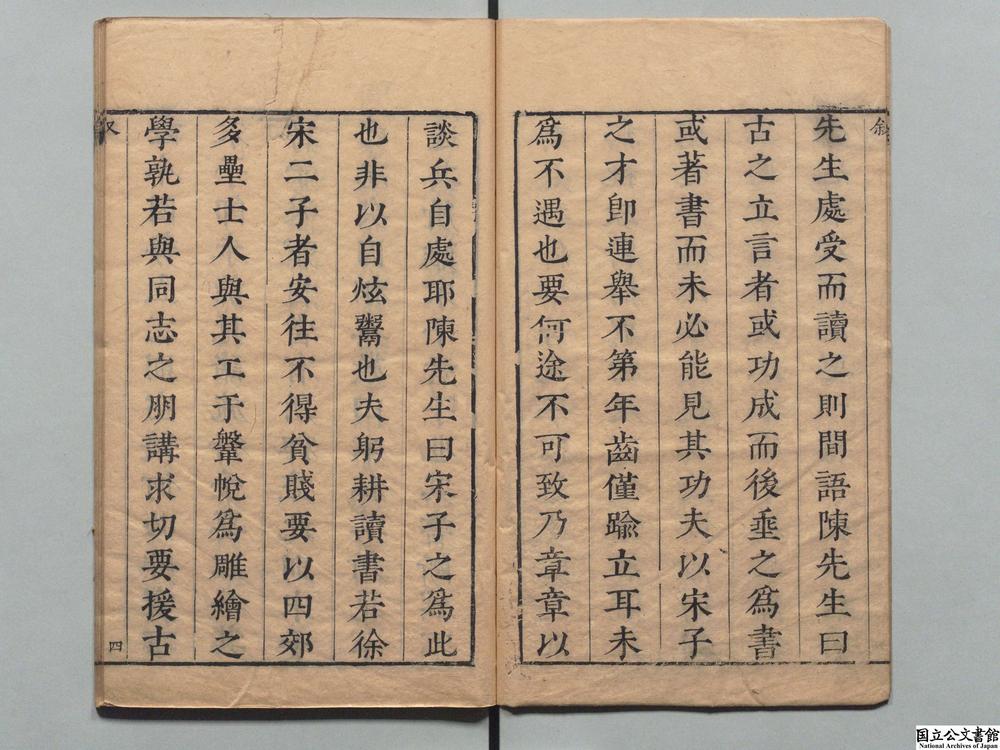 叙
先生處受而讀之則間語陳先生曰
古之立言者或功成而後垂之爲書
或著書而未必能見其功夫以宋子
之才卽連舉不第年齒僅踰立耳未
爲不遇也要何途不可致乃章章以
談兵自處耶陳先生曰宋子之爲此
也非以自炫鬻也夫躬耕讀書若徐
宋二子者安往不得貧賤要以四郊
多壘士人與其工于鞶帨爲雕繪之
學孰若與同志之朋講求切要援古
四
国立公文書館
National Archives of Japan